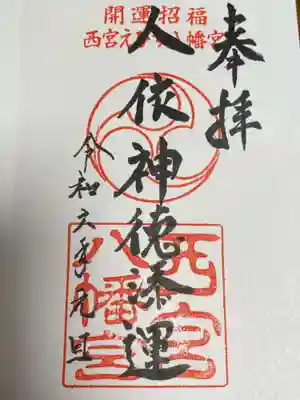 開運招福
西宮え八幡宮
奉拝
人依神徳添運
令和六年元旦
西宮
八幡宮